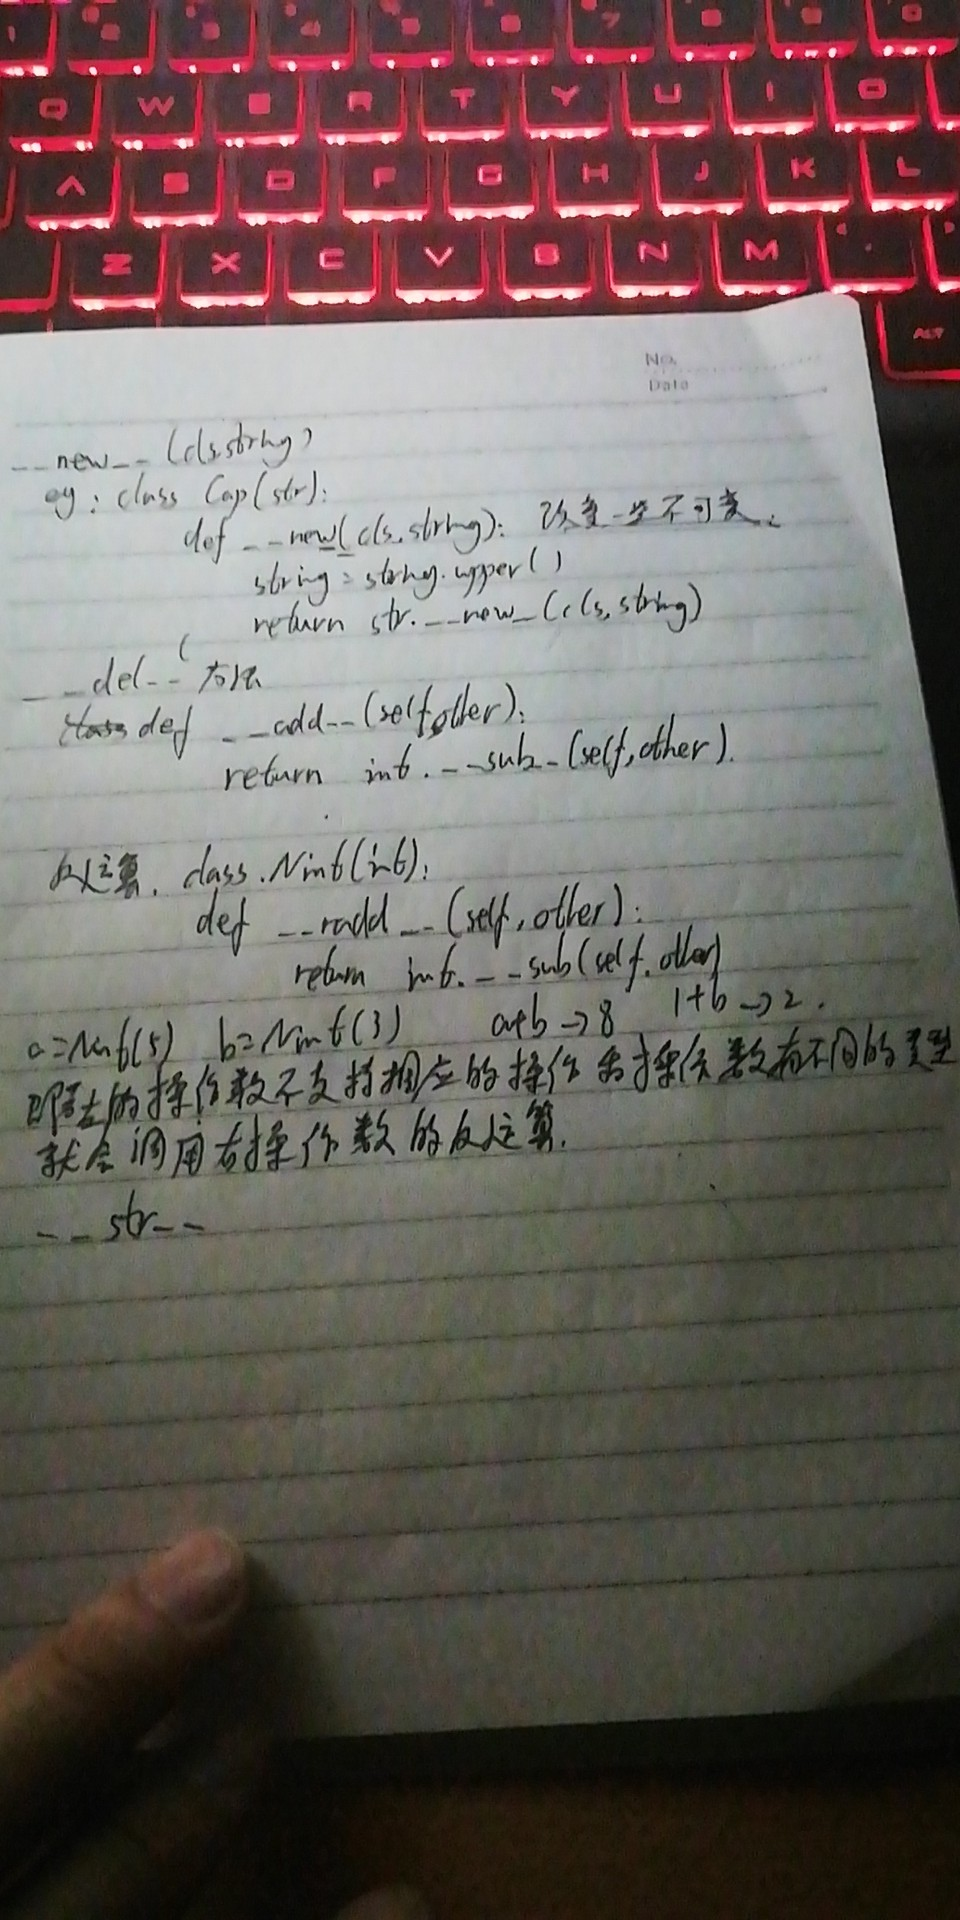 Q W E R T Y U I O
A S D F G H J K L
Z X C V B N M
ALT
No.
Date
__new__(cls,string)
eg: class Cap(str):
def __new(cls,string): 改变一些不可变
string = string.upper()
return str.__new_(cls,string)
__del__ 方法
class def __add__(self,other):
return int.__sub_(self,other).
反运算. class.Nint(int):
def __radd__(self,other):
return int.__sub(self.other)
a=Nint(5) b=Nint(3) a+b→8 1+b→2.
即当左的操作数不支持相应的操作 且操作数有不同的类型
就会调用右操作数的反运算.
__str__